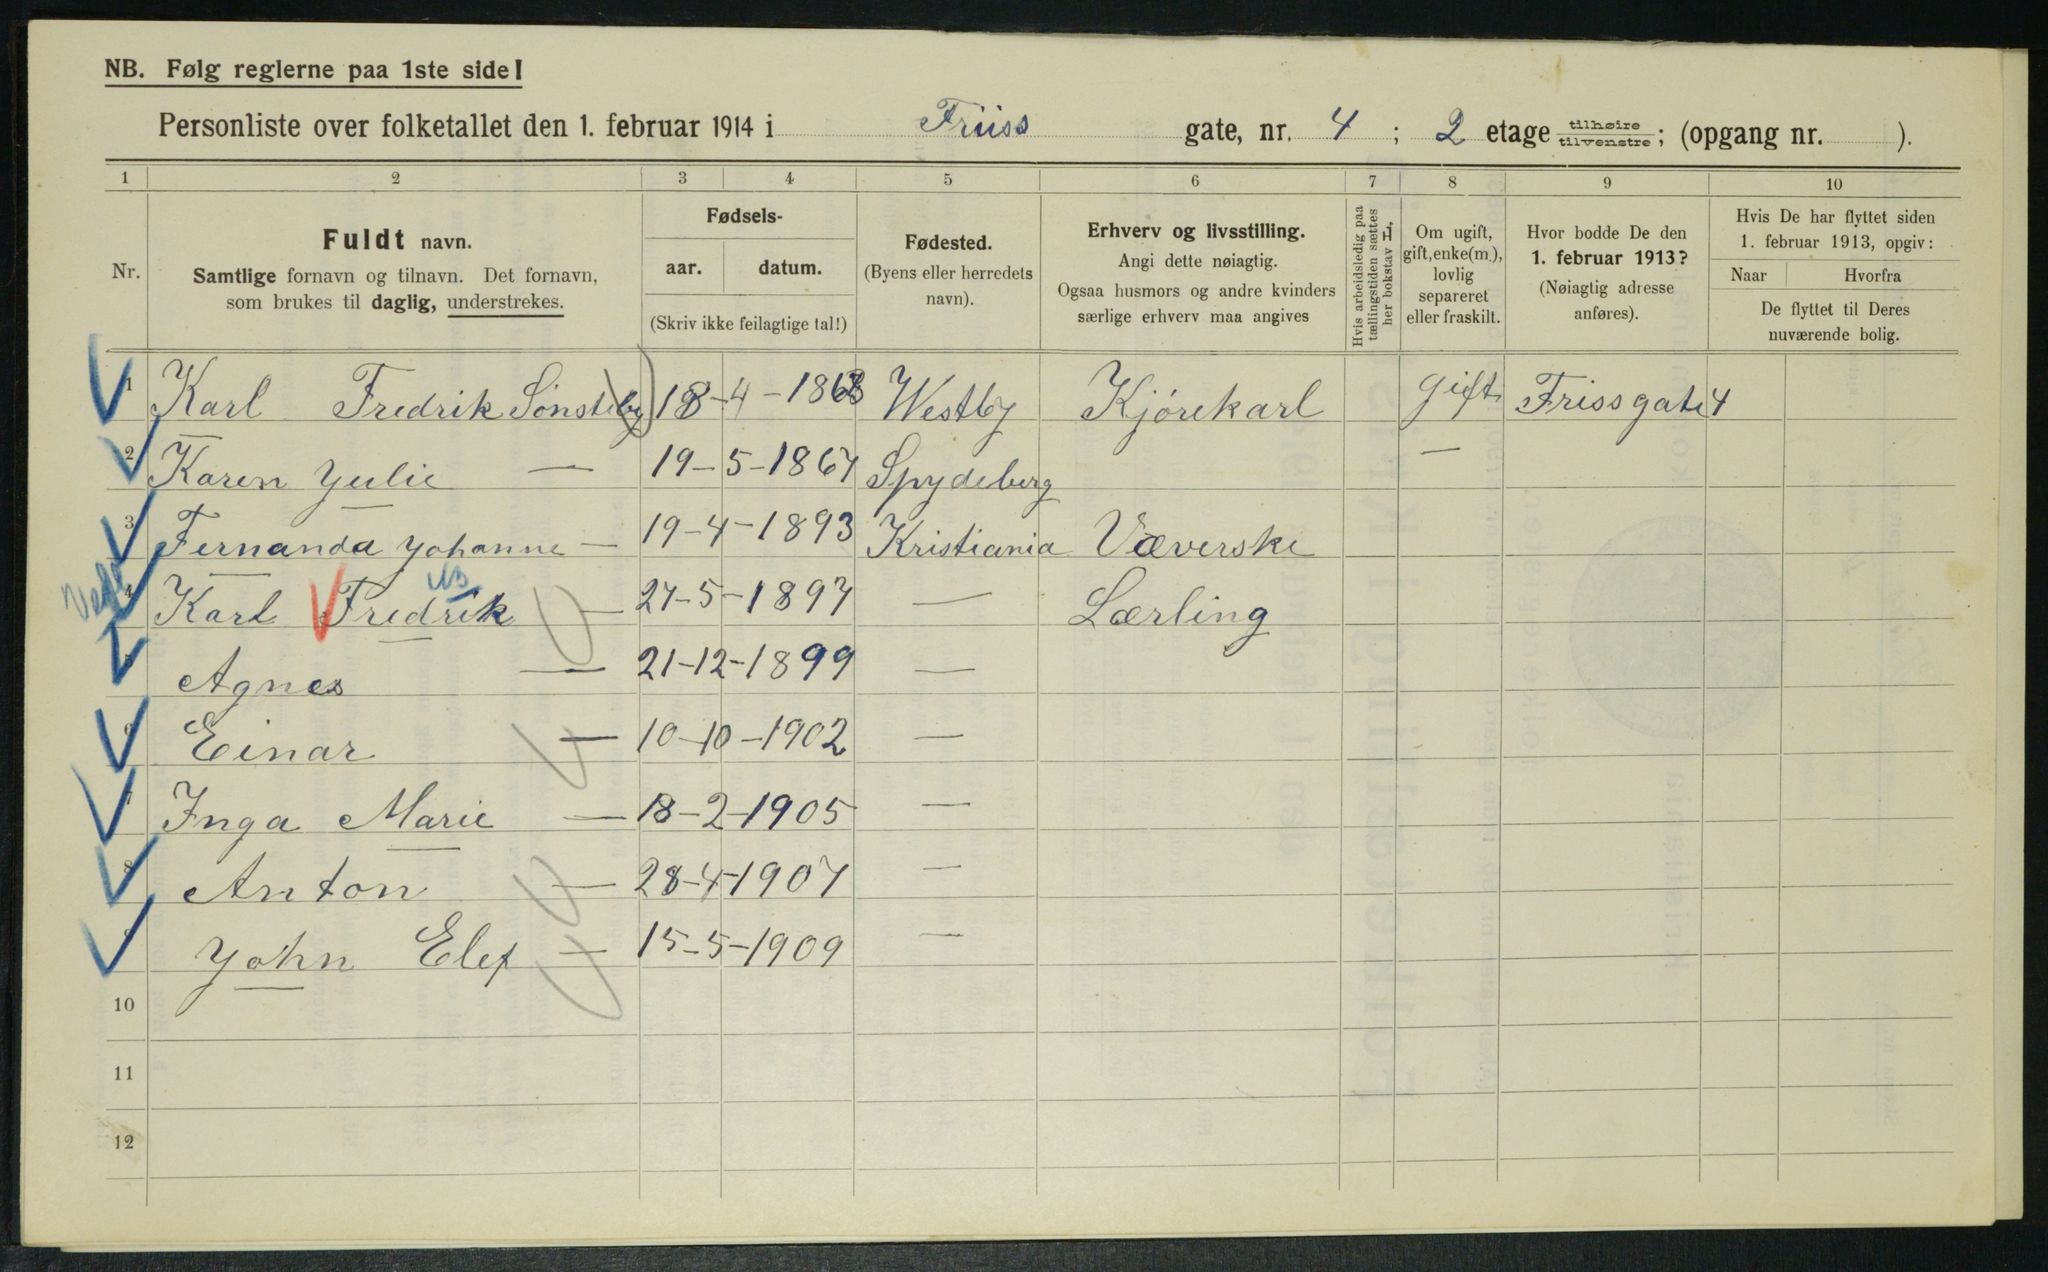 NB. Følg reglerne paa 1ste side!
Personliste over folketallet den 1. februar 1914 i Friiss gate, nr. 4 ; 2 etage tilhøire tilvenstre; (opgang nr. ).
1 2 3 4 5 6 7 8 9 10
Nr.
Fuldt navn.
Samtlige fornavn og tilnavn. Det fornavn,
som brukes til daglig, understrekes.
Fødsels-
aar. datum.
(Skriv ikke feilagtige tal!)
Fødested.
(Byens eller herredets
navn).
Erhverv og livsstilling.
Angi dette nøiagtig.
Ogsaa husmors og andre kvinders
særlige erhverv maa angives
Hvis arbeidsledig paa
tællingstiden sættes
her bokstav L.
Om ugift,
gift, enke(m.),
lovlig
separeret
eller fraskilt.
Hvor bodde De den
1. februar 1913?
(Nøiagtig adresse
anføres).
Hvis De har flyttet siden
1. februar 1913, opgiv:
Naar Hvorfra
De flyttet til Deres
nuværende bolig.
1 Karl Fredrik Sönsteby 18-4-1868 Westby Kjörekarl gift Frissgate 4
2 Karen Yulie — 19-5-1867 Spydeberg —
3 Fernanda Yohanne — 19-4-1893 Kristiania Væverske
4 Karl Fredrik — 27-5-1897 — Lærling
5 Agnes — 21-12-1899 —
6 Einar — 10-10-1902 —
7 Inga Marie — 18-2-1905 —
8 Anton — 28-4-1907 —
9 Yohn Elef — 15-5-1909 —
10
11
12